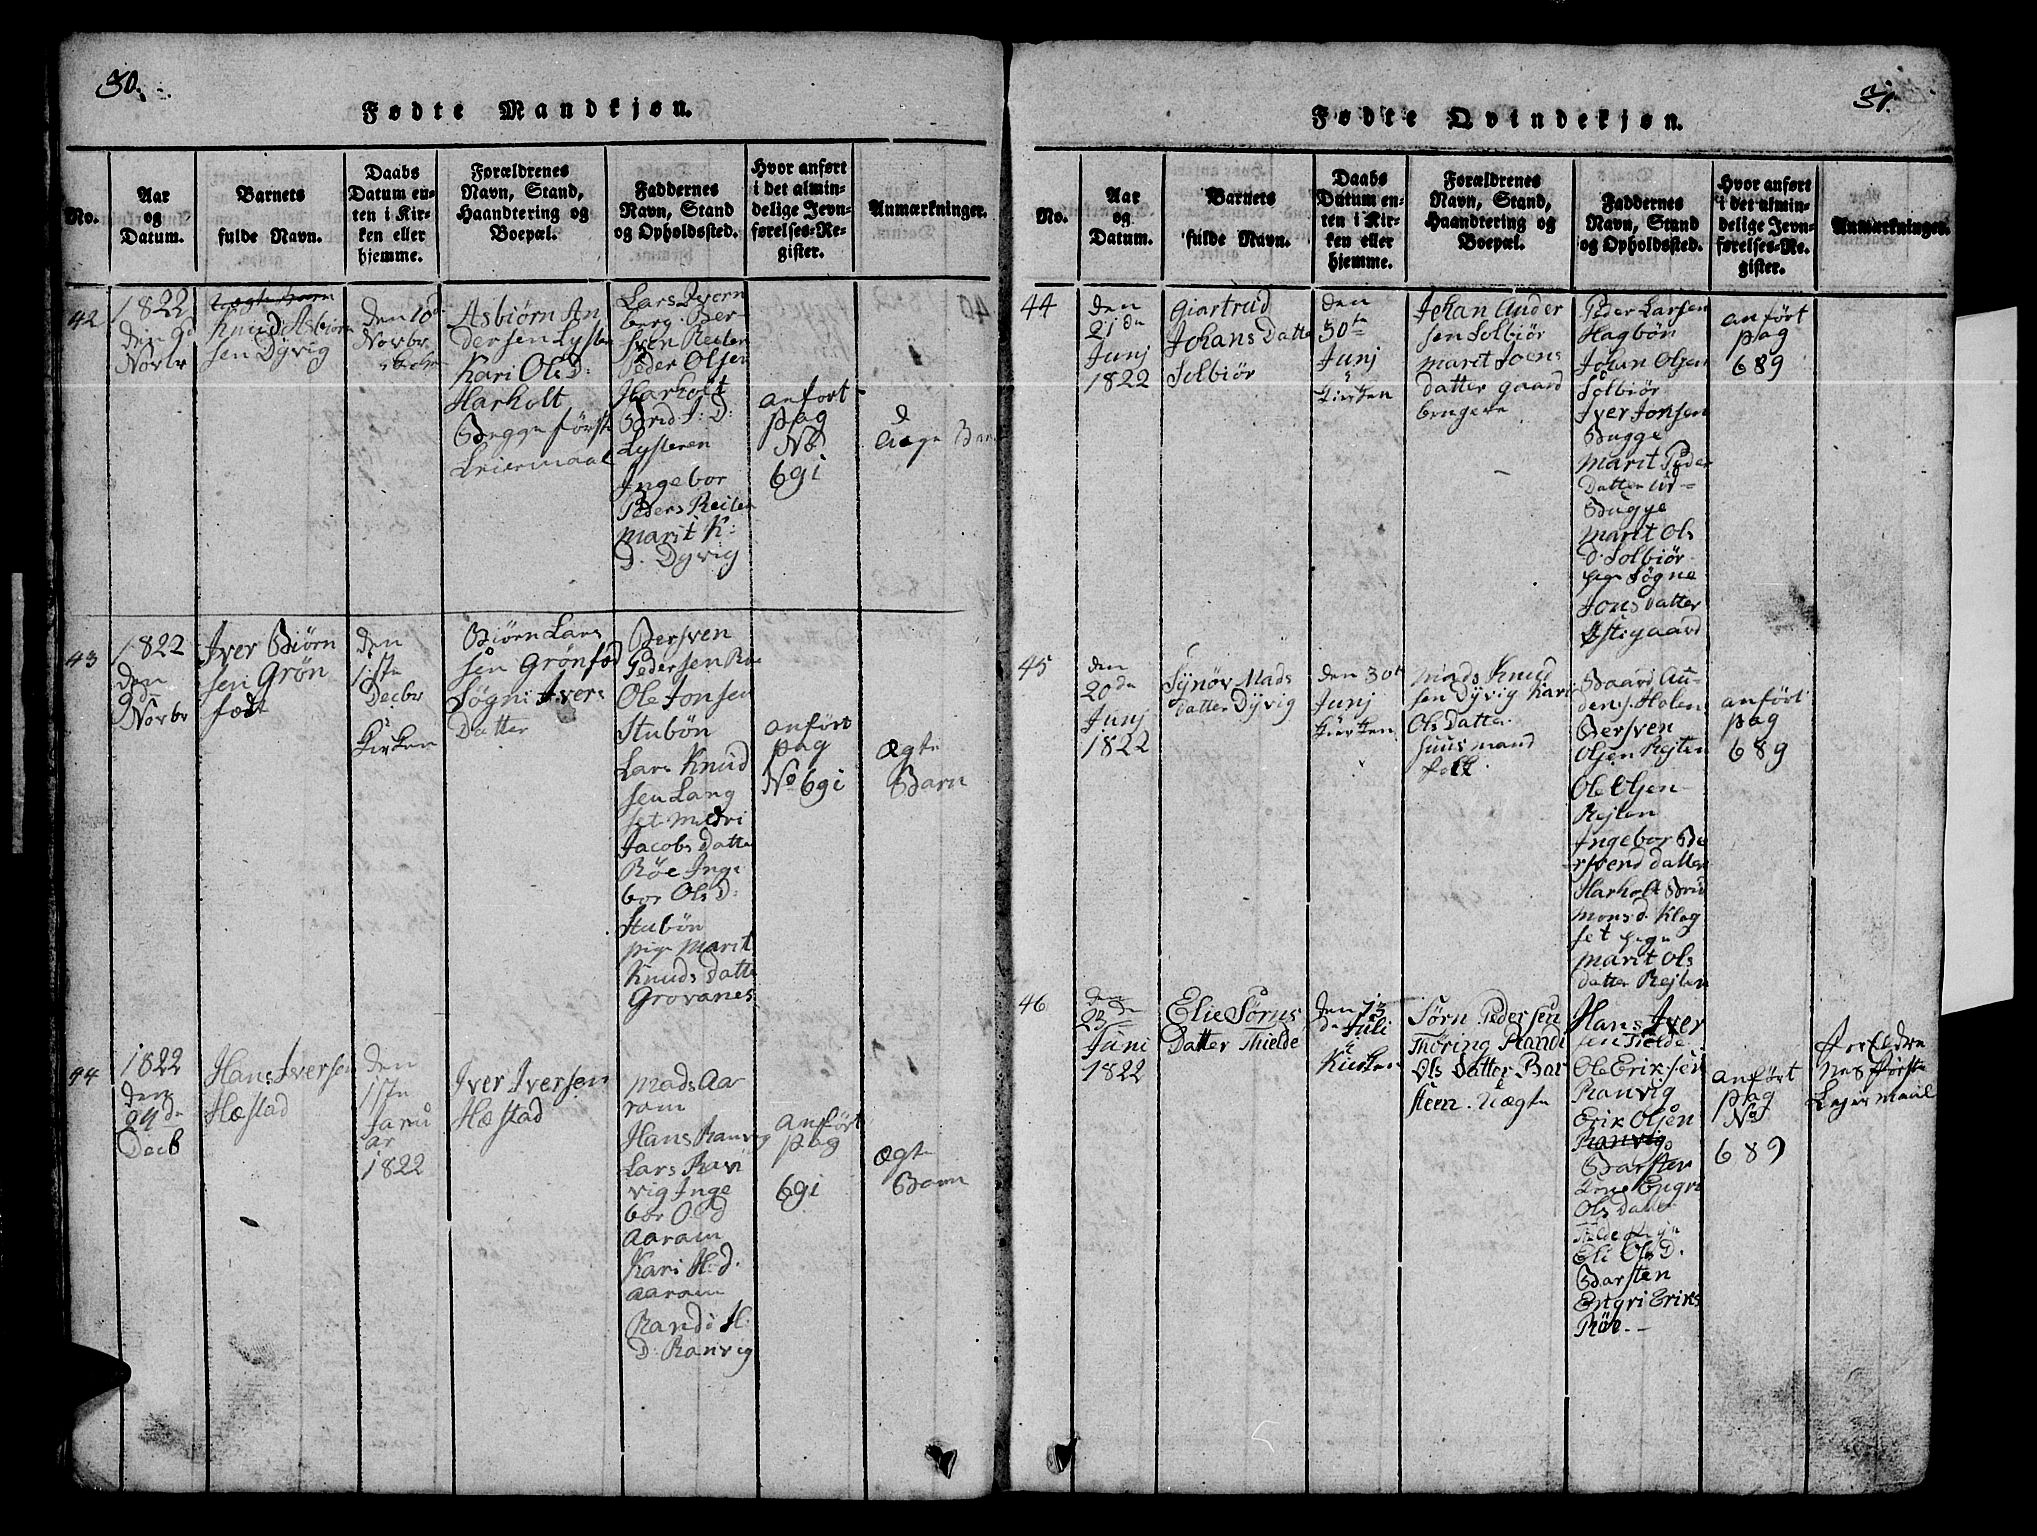 30.
Fødte Mandkjøn.
No.
Aar
og
Datum.
Barnets
fulde Navn.
Daabs
Datum en-
ten i Kir-
ken eller
hjemme.
Forældrenes
Navn, Stand,
Haandtering og
Boepæl.
Faddernes
Navn, Stand
og Opholdssted.
Hvor anført
i det almin-
delige Jevn-
førelses-Re-
gister.
Anmærkninger.
42
1822
den 9d
Novbr
Knud Asbiørn
sen Dyvig
Den 10d
Novbr
Asbiørn An
dersen Lysten
Kari Ols D:
Harholt
Begge første
Leiermaal
Lars Ivern
berg. Ber
sven Reiten
Peder Olsen
Harholt
Brid J: D:
Lysteren
Ingebor
Peders Reiten
marit K:
D. Dyvig
anfort
pag
No
691
Barn
43
1822
den
9
Novbr
Iver Biørn
sen Grøn
fædt
den
1ste
Decbr
i
Kirken
Biørn Lars
sen Grønfæd
Søgni Ivers
Datter
Bersven
Pedersen
Ole Jonsen
Stubøn
Lars Knud
sen Lang
set
Jacobs Datte
Røe Inge
bor Ols D:
Stubøn
pige Marit
Knuds Datte
Grovanes
anført
pag
No 691
Ægte
Barn
44
1822
den
29de
Decb
Hans Iversen
Hæstad
den
1ste
Janu
ar
1822
Iver Iversen
Hæstad
mads Aa
ram
Hans Ranvig
Lars Ran
vig Inge
bor O:d
Aaram
Kari H:d.
aaram
Randi H:
D. Ranvig
anført
pag
691
Ægte
Barn
31.
Fødte Qvindekjøn.
No.
Aar
og
Datum.
Barnets
fulde Navn.
Daabs
Datum en-
ten i Kir-
ken eller
hjemme.
Forældrenes
Navn, Stand,
Haandtering og
Boepæl.
Faddernes
Navn, Stand
og Opholdssted.
Hvor anført
i det almin-
delige Jevn-
førelses-Re-
gister.
Anmærkninger.
44
den
21de
Junj
1822
Giertrud
Johans Datte
Solbiør
den
30te
Junj
i
Kirken
Johan Ander
sen Solbiør
marit Joens
datter gaard
brugere
Peder Larsen
Hagbøn
Johan Olsen
Solbiør
Iver Jonsen
Bugge
marit Peder
Datter
Bugge
Marit Ols
d. Solbiør
pige Søgne
Jons datter
Østigaard
anført
pag
689
45
den
20de
Junj
1822
Synøv Mads
datter Dyvig
den 30te
Junj
i
Kirken
mads Knud
sen Dyvig Kari
Ols Datter
huusmand
folk
Baard Au-
dens. Holen
Bersven
Olsen Rejten
Ole Olsen
Rejten
Ingebor Be
rsvend datter
Harholt Brid
mons d. Klag
set pige
Marit Ols
datter Rejten
anført
pag
689
46
den
23de
Juni
1822
Elie Sørns
Datter Thielde
den 13
de Juli
i
Kirken
Sørn Pedersen
Thøring Randi
Ols Datter Bar
steen. Uægte
Hans Iver
sen Tielde
Ole Eriksen
Ranvig
Erik Olsen
Ranvig
Barsten
Kone Engri
Ols datter
Tielde Pige
Eli Ols D.
Barsten
Engri Eriks
Røe.-
anført
pag
No
689
Forældre
nes første
Lejermaal